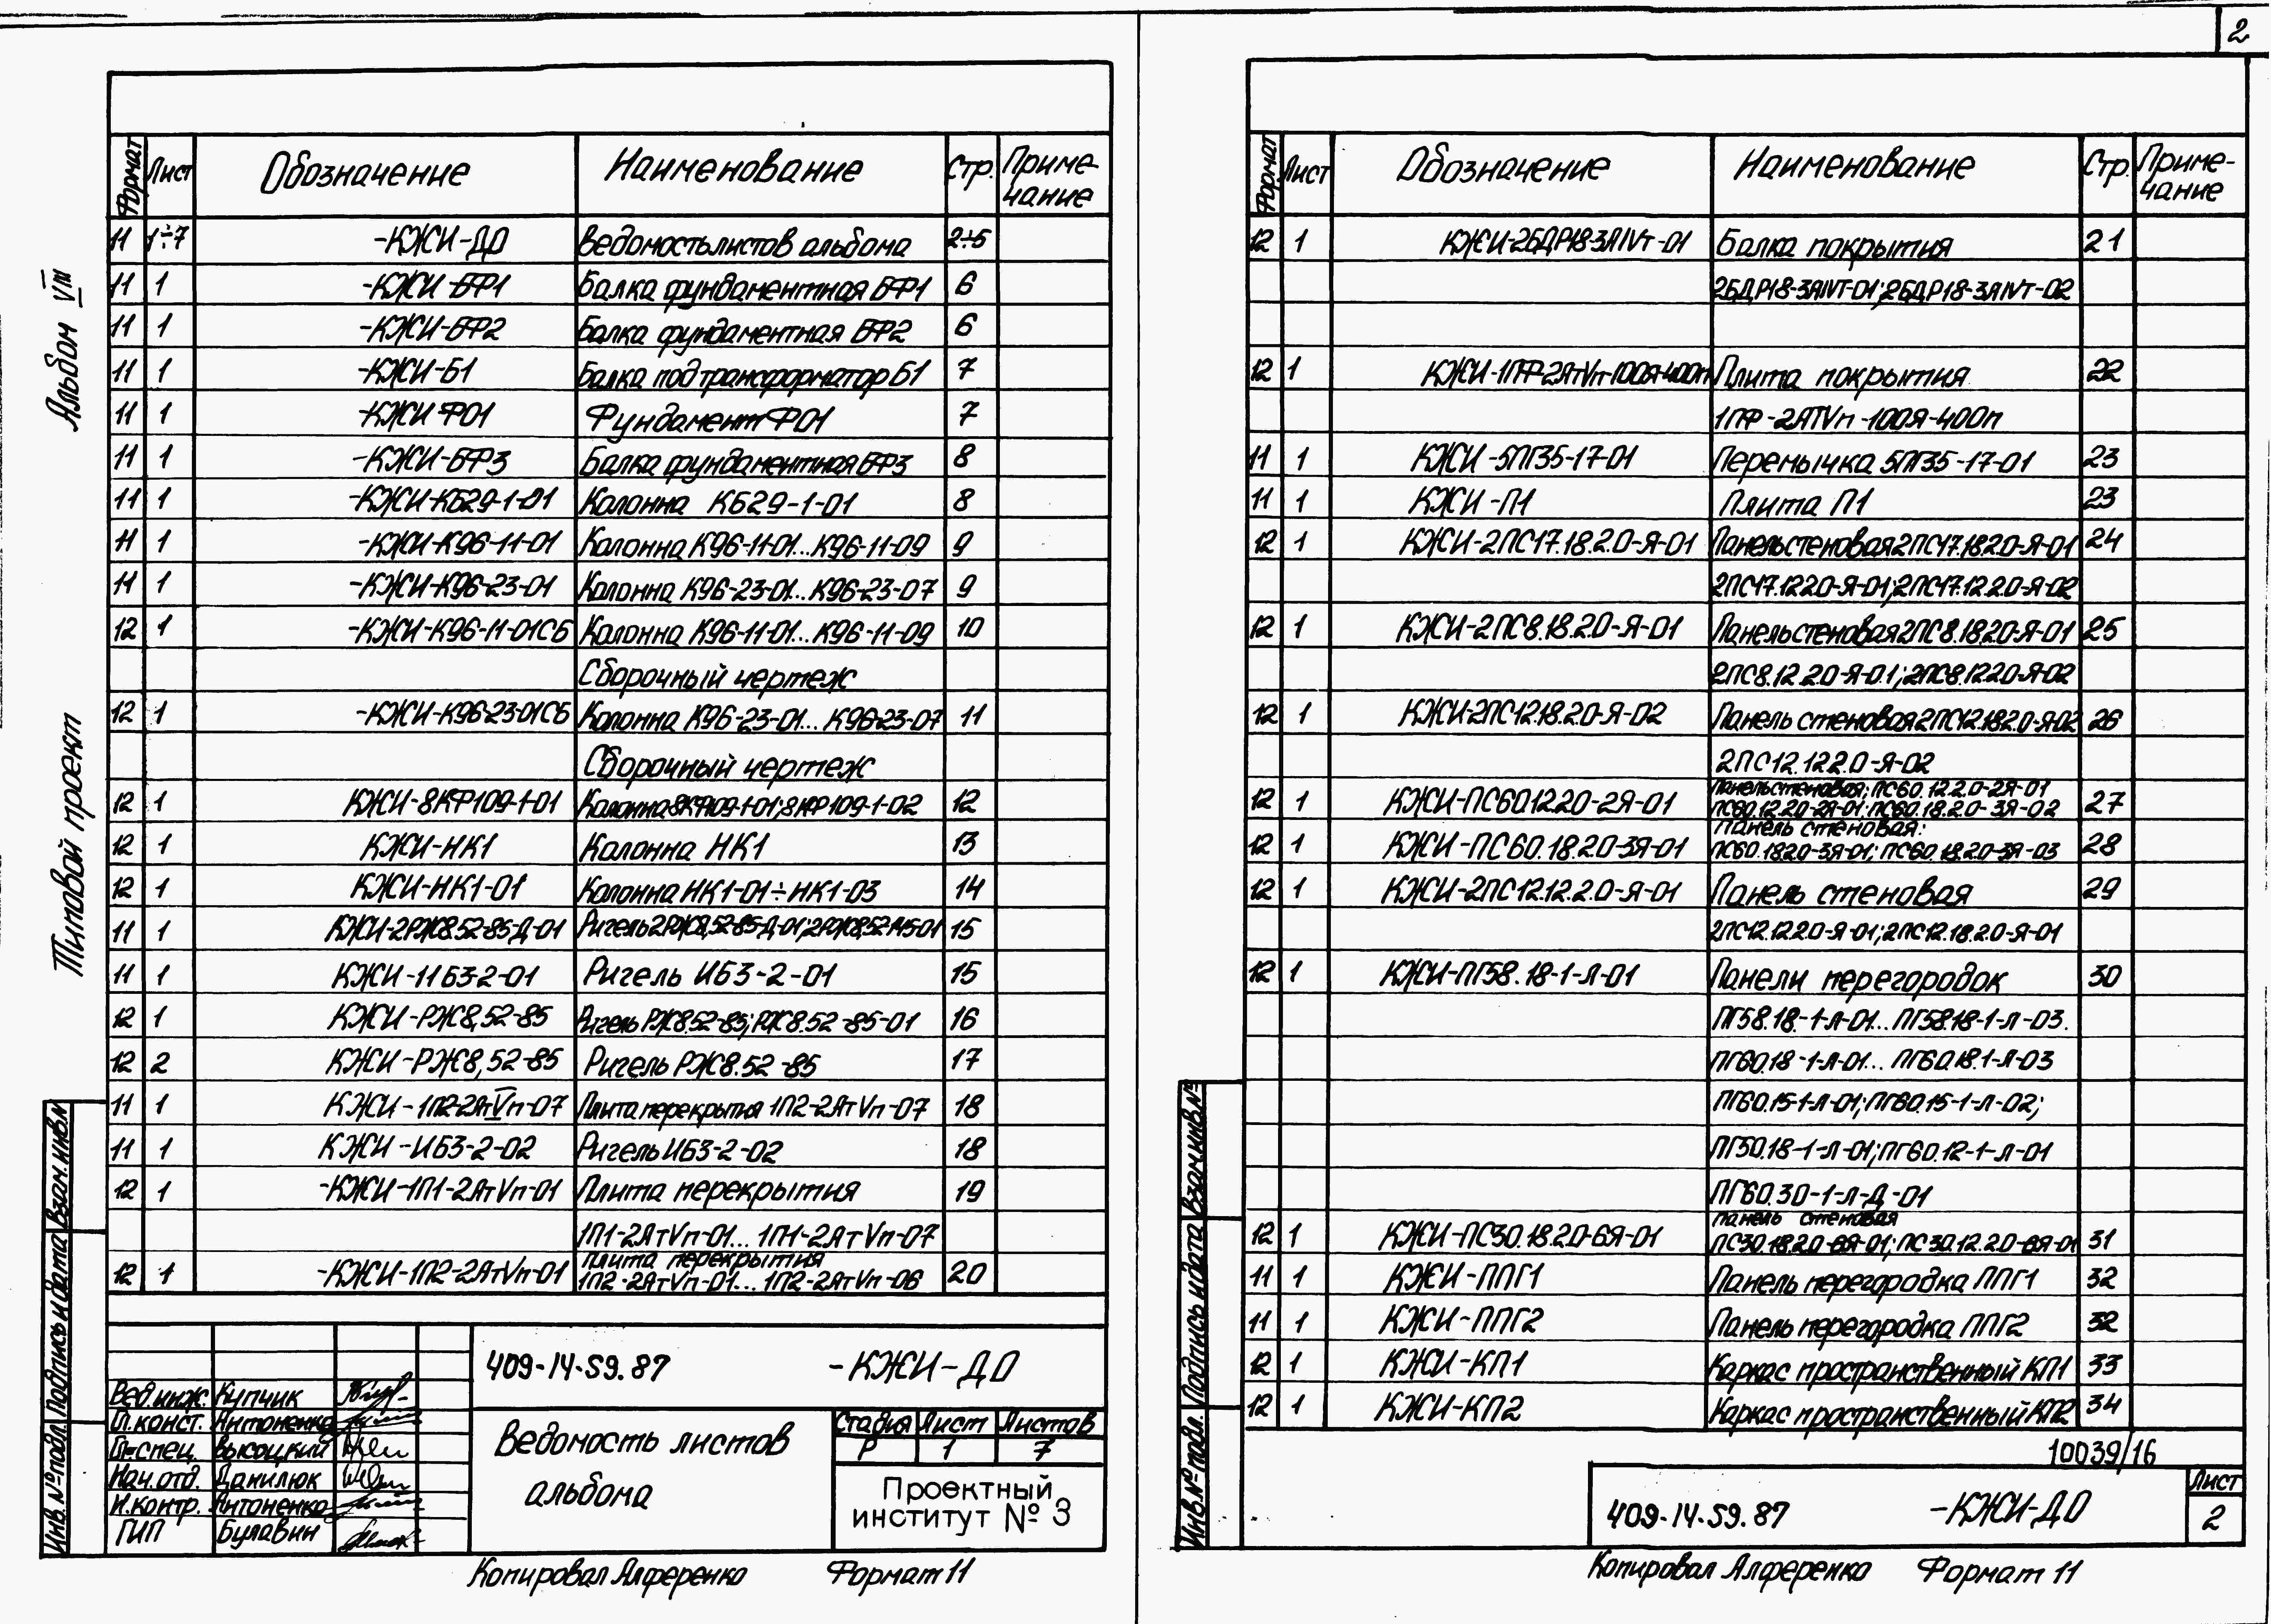 2
Альбом VIII
Типовой проект
Формат Лист Обозначение Наименование Стр. Приме-
чание
11 1÷7 -КЖИ-ДО Ведомость листов альбома 2÷5
11 1 -КЖИ-БФ1 Балка фундаментная БФ1 6
11 1 -КЖИ-БФ2 Балка фундаментная БФ2 6
11 1 -КЖИ-Б1 Балка под трансформатор Б1 7
11 1 -КЖИ-ФО1 Фундамент ФО1 7
11 1 -КЖИ-БФ3 Балка фундаментная БФ3 8
11 1 -КЖИ-КБ29-1-01 Колонна КБ29-1-01 8
11 1 -КЖИ-К96-11-01 Колонна К96-11-01...К96-11-09 9
11 1 -КЖИ-К96-23-01 Колонна К96-23-01...К96-23-07 9
12 1 -КЖИ-К96-11-01СБ Колонна К96-11-01...К96-11-09 10
Сборочный чертеж
12 1 -КЖИ-К96-23-01СБ Колонна К96-23-01...К96-23-07 11
Сборочный чертеж
12 1 КЖИ-8КФ109-1-01 Колонна 8КФ109-1-01; 8КФ109-1-02 12
12 1 КЖИ-НК1 Колонна НК1 13
12 1 КЖИ-НК1-01 Колонна НК1-01÷НК1-03 14
11 1 КЖИ-2РЖ8.52-85-Д-01 Ригель 2РЖ8.52-85-Д-01; 15
11 1 КЖИ-11Б3-2-01 Ригель ИБ3-2-01 15
12 1 КЖИ-РЖ8,52-85 Ригель РЖ8.52-85; РЖ8.52-85-01 16
12 2 КЖИ-РЖ8,52-85 Ригель РЖ8.52-85 17
11 1 КЖИ-1П2-2АтVп-07 Плита перекрытия 1П2-2АтVп-07 18
11 1 КЖИ-ИБ3-2-02 Ригель ИБ3-2-02 18
12 1 -КЖИ-1П1-2АтVп-01 Плита перекрытия 19
1П1-2АтVп-01...1П1-2АтVп-07
Плита перекрытия
12 1 -КЖИ-1П2-2АтVп-01 1П2-2АтVп-01...1П2-2АтVп-06 20
Инв.№подл. Подпись и дата Взам.инв.№
Вед.инж. Купчик
Гл.конст. Антоненко
Гл.спец. Высоцкий
Нач.отд. Данилюк
Н.контр. Антоненко
ГИП Булавин
409-14-59.87 -КЖИ-ДО
Ведомость листов
альбома
Стадия Лист Листов
Р 1 7
Проектный
институт № 3
Копировал Алференко Формат 11
Формат Лист Обозначение Наименование Стр. Приме-
чание
12 1 КЖИ-2БДР18-3АIVт-01 Балка покрытия 21
2БДР18-3АIVт-01; 2БДР18-3АIVт-02
12 1 КЖИ-1ПФ-2АтVп-100Я-400п Плита покрытия 22
1ПФ-2АТVп-100Я-400п
11 1 КЖИ-5ПГ35-17-01 Перемычка 5ПГ35-17-01 23
11 1 КЖИ-П1 Плита П1 23
12 1 КЖИ-2ПС17.18.2.0-Я-01 Панель стеновая 2ПС17.18.2.0-Я-01 24
2ПС17.12.2.0-Я-01; 2ПС17.12.2.0-Я-02
12 1 КЖИ-2ПС8.18.2.0-Я-01 Панель стеновая 2ПС8.18.2.0-Я-01 25
2ПС8.12.2.0-Я-01; 2ПС8.12.2.0-Я-02
12 1 КЖИ-2ПС12.18.2.0-Я-02 Панель стеновая 2ПС12.18.2.0-Я-02 26
2ПС12.12.2.0-Я-02
Панель стеновая; ПС60.12.2.0-2Я-01
12 1 КЖИ-ПС60.12.2.0-2Я-01 ПС60.12.2.0-2Я-01; ПС60.18.2.0-3Я-02 27
Панель стеновая:
12 1 КЖИ-ПС60.18.2.0-3Я-01 ПС60.18.2.0-3Я-01; ПС60.18.2.0-3Я-03 28
12 1 КЖИ-2ПС12.12.2.0-Я-01 Панель стеновая 29
2ПС12.12.2.0-Я-01; 2ПС12.18.2.0-Я-01
12 1 КЖИ-ПГ58.18-1-Л-01 Панели перегородок 30
ПГ58.18-1-Л-01...ПГ58.18-1-Л-03.
ПГ60.18-1-Л-01...ПГ60.18.1-Л-03
ПГ60.15-1-Л-01; ПГ60.15-1-Л-02;
ПГ30.18-1-Л-01; ПГ60.12-1-Л-01
ПГ60.30-1-Л-Д-01
Панель стеновая
12 1 КЖИ-ПС30.18.2.0-6Я-01 ПС30.18.2.0-6Я-01; ПС30.12.2.0-6Я-01 31
11 1 КЖИ-ППГ1 Панель перегородка ППГ1 32
11 1 КЖИ-ППГ2 Панель перегородка ППГ2 32
12 1 КЖИ-КП1 Каркас пространственный КП1 33
12 1 КЖИ-КП2 Каркас пространственный КП2 34
Инв.№подл. Подпись и дата Взам.инв.№
10039/16
409-14-59.87 -КЖИ-ДО
Лист
2
Копировал Алференко Формат 11